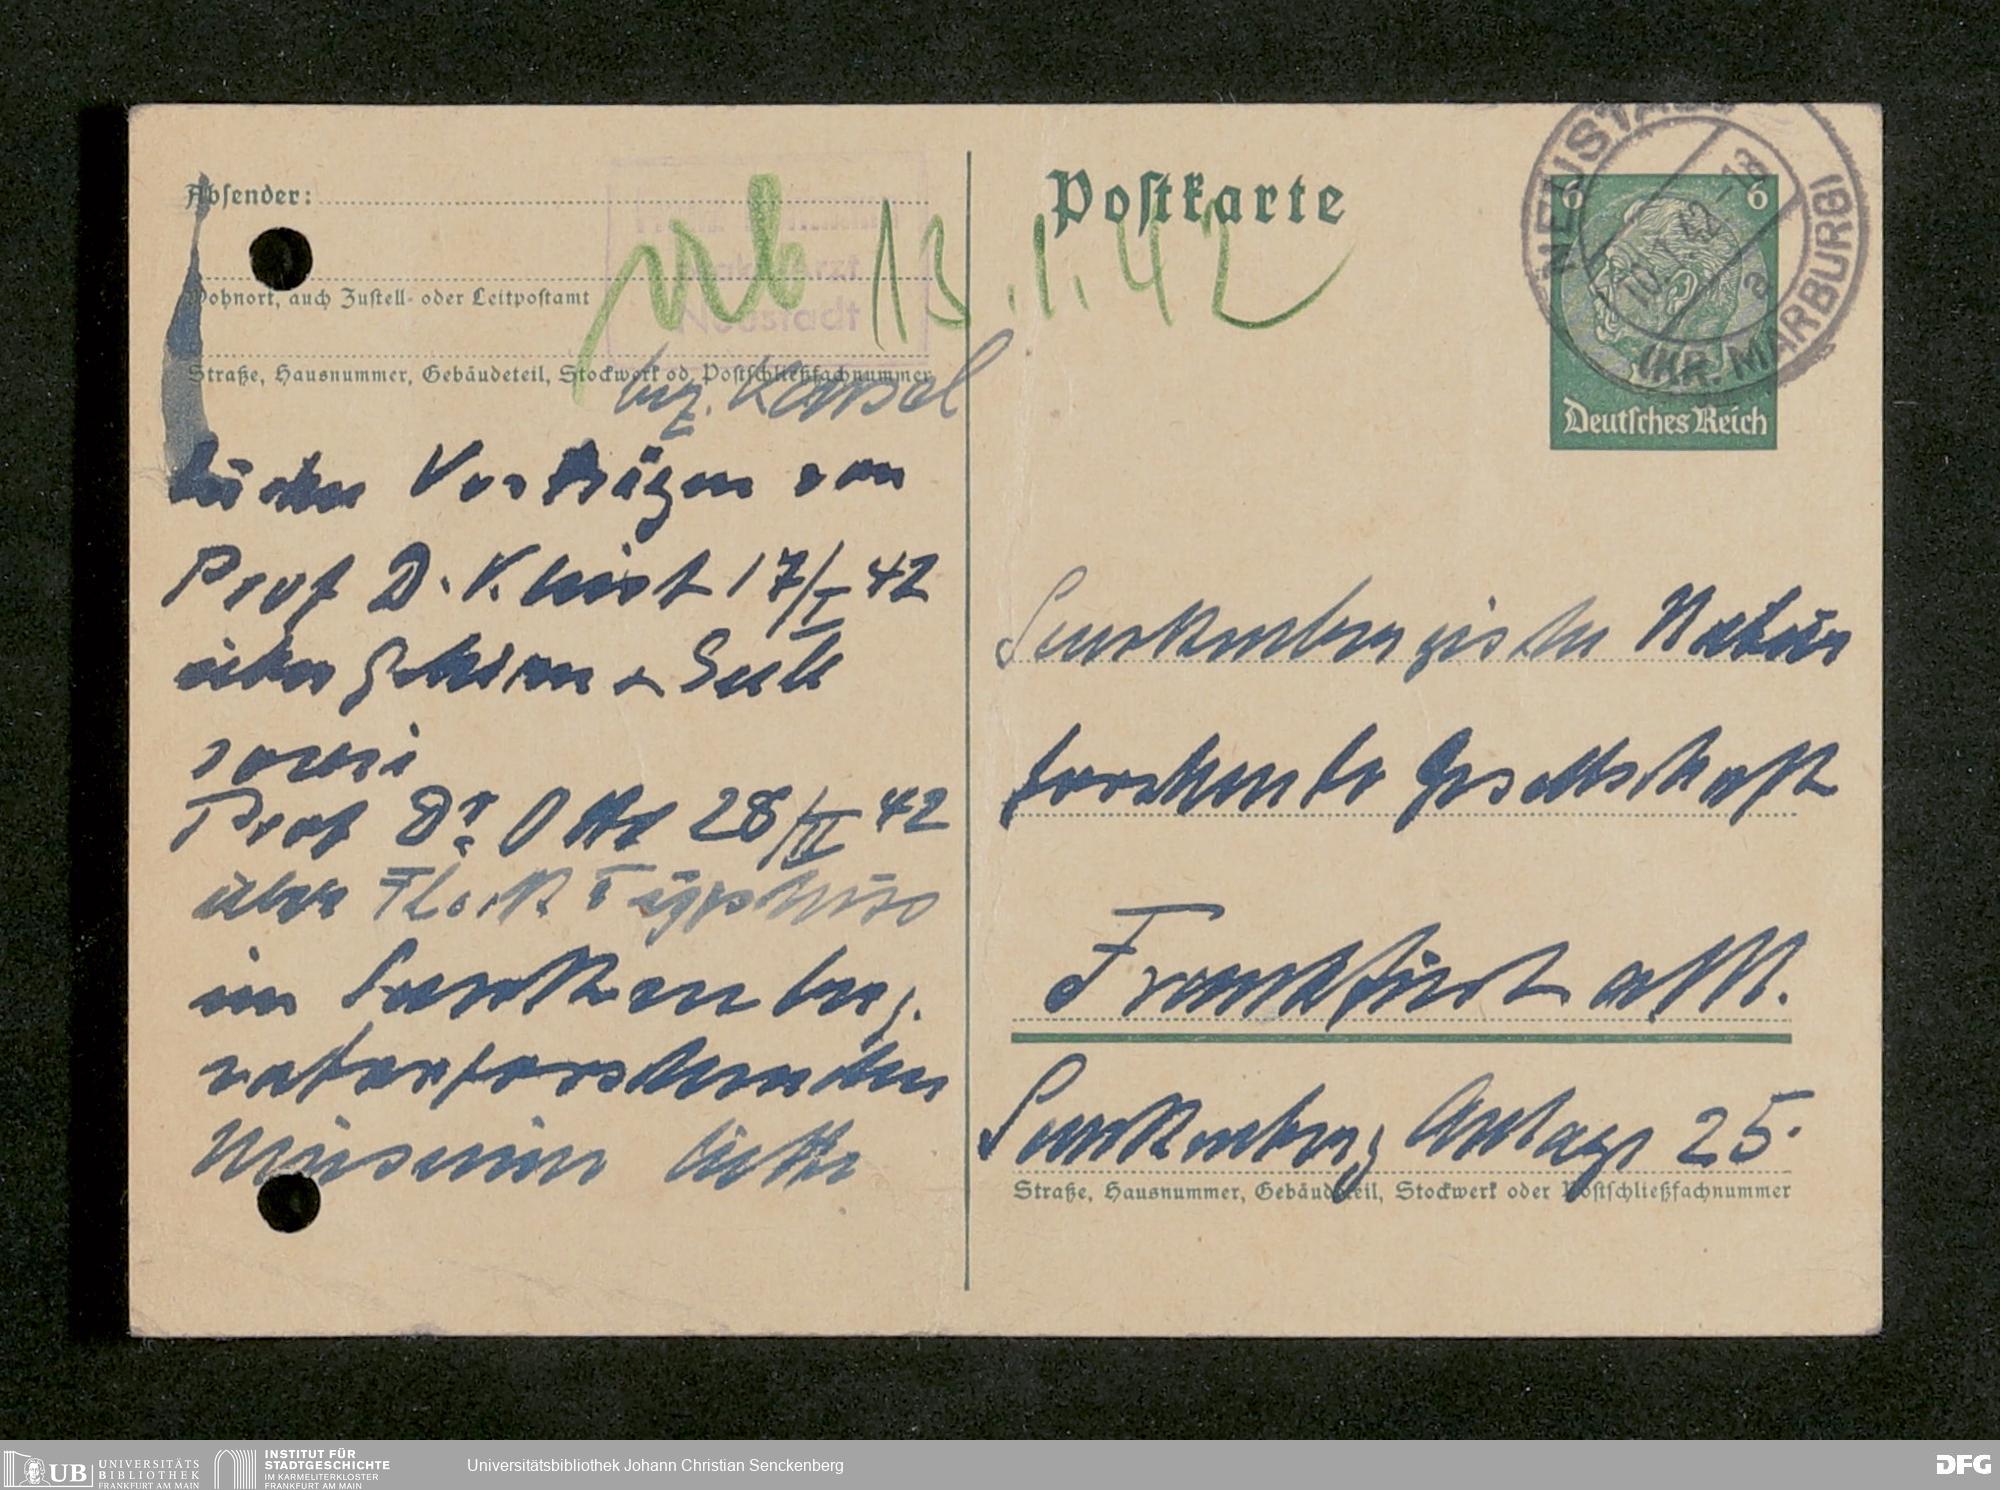 Absender:
Wohnort, auch Zustell- oder Leitpostamt
Neustadt
Straße, Hausnummer, Gebäudeteil, Stockwerk od. Postschließfachnummer
bez. Kassel
13.1.42
Zu den Vorträgen von
Prof D. Kleist 17/I 42
über Gehirn & Seele
sowie
Prof Dr. Otto 28/II 42
über
im Senckenberg.
naturforschenden
Museum bitte
Postkarte
6 6
Deutsches Reich
NEUSTADT
10.1.42-18
a
(KR. MARBURG)
Senckenbergische Natur
forschende Gesellschaft
Frankfurt a/M.
Senckenberg Anlage 25.
Straße, Hausnummer, Gebäudeteil, Stockwerk oder Postschließfachnummer
UB UNIVERSITÄTS
BIBLIOTHEK
FRANKFURT AM MAIN
INSTITUT FÜR
STADTGESCHICHTE
IM KARMELITERKLOSTER
FRANKFURT AM MAIN
Universitätsbibliothek Johann Christian Senckenberg
DFG